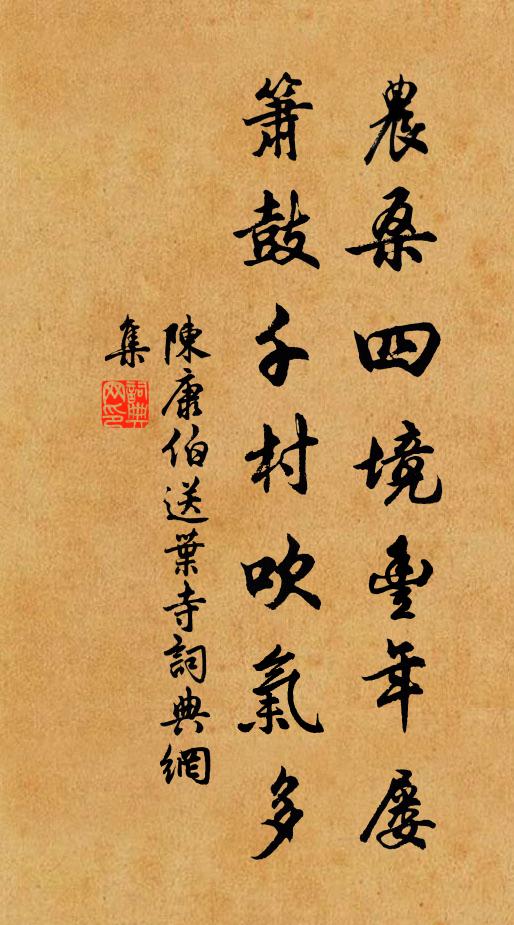 農桑四境豐年屢
簫鼓千村吹氣多
陳康伯送葉寺詞典網
集
詞典網印